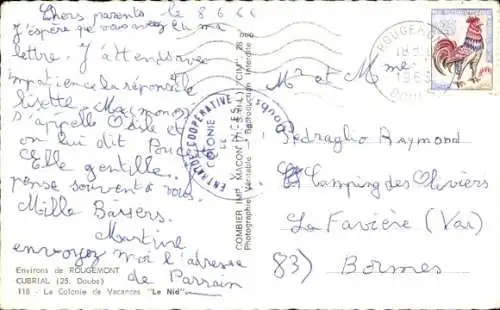 Chers parents le 8 6 6
J'espère que vous avez eu ma
lettre. J'attends avec
impatience la réponse de
lisette. Ma mono
s'appelle Odile et
on lui dit
Elle gentille.
pense souvent à vous.
Mille Baisers.
Martine
envoyez moi l'adresse
de Parrain
Environs de ROUGEMONT
CUBRIAL (25. Doubs)
118 - La Colonie de Vacances "Le Nid"
COMBIER IMP. MACON (S.-&-L.) "CIM"
Photographie Véritable - Reproduction Interdite
ENTR'AIDE COOPÉRATIVE
COLONIE
LE
Doubs
ROUGEMONT
18 H
1965
DOUBS
Mr et Mme
Pedraglio Raymond
Camping des Oliviers
La Favière (Var)
83) Bormes